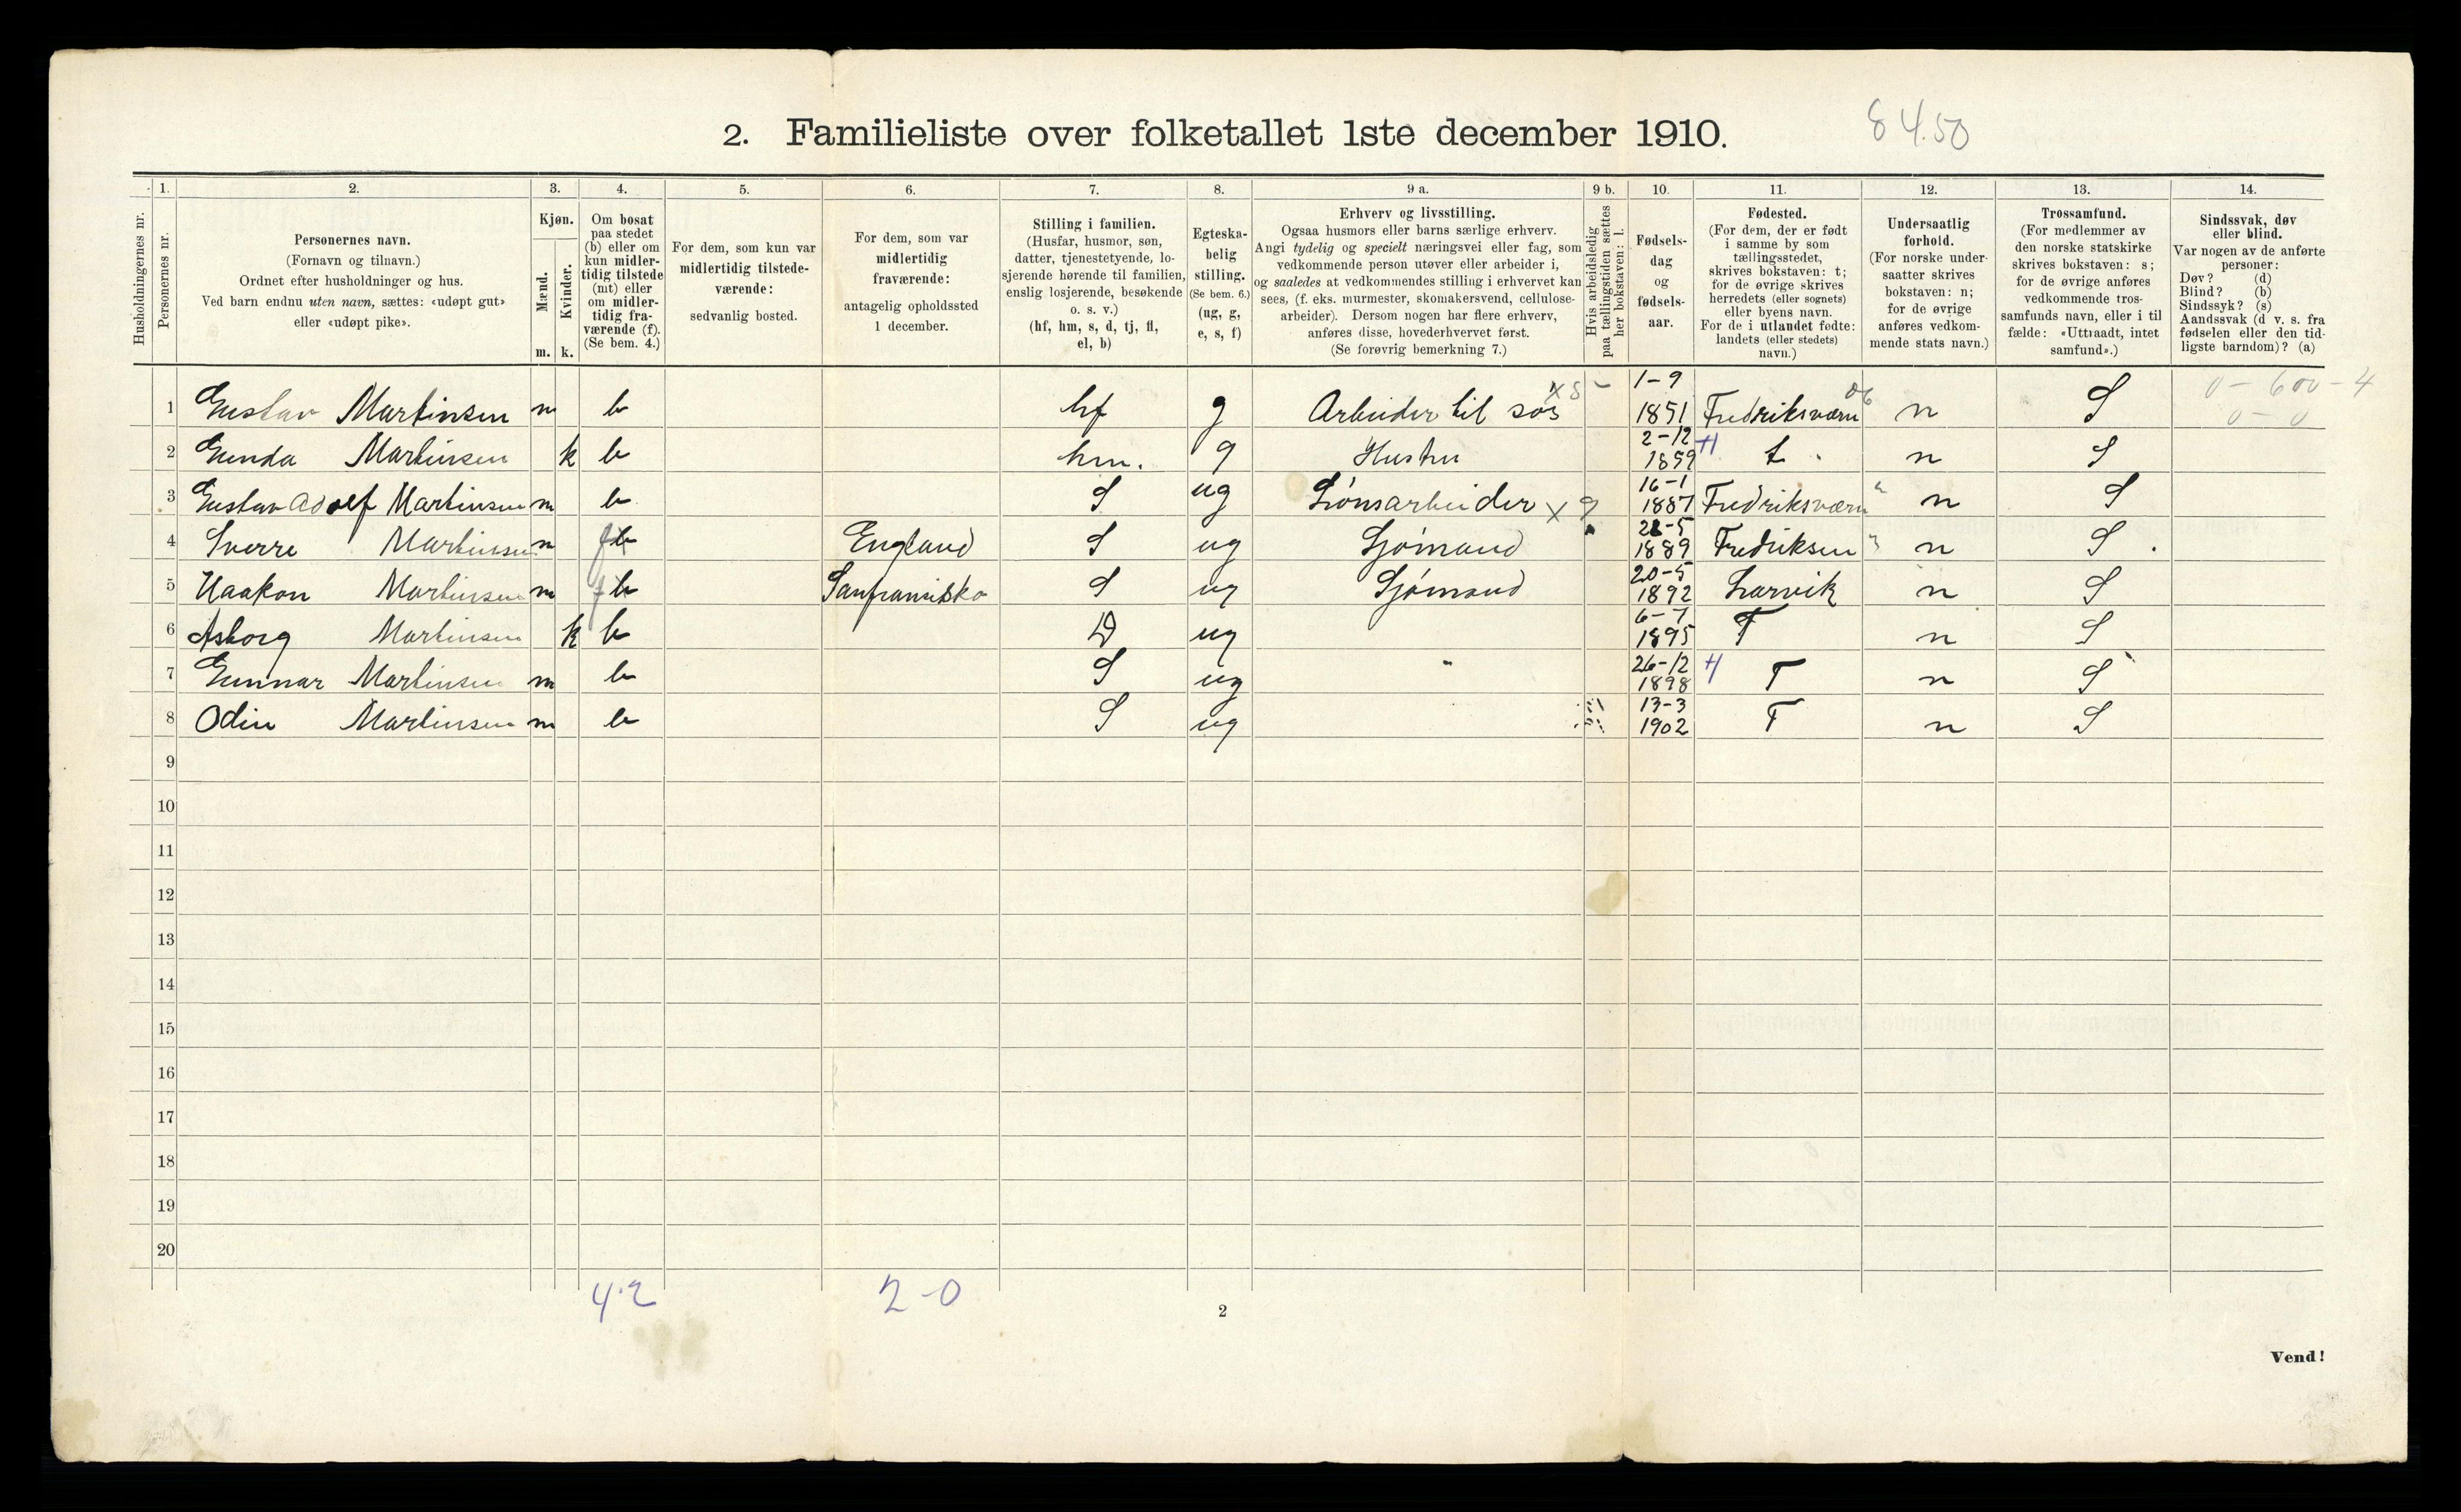 2. Familieliste over folketallet 1ste december 1910.
84.50
Husholdningernes nr.
1. Personernes nr.
2. Personernes navn. (Fornavn og tilnavn.) Ordnet efter husholdninger og hus. Ved barn endnu uten navn, sættes: «udøpt gut» eller «udøpt pike».
3. Kjøn. Mænd. m. Kvinder. k.
4. Om bosat paa stedet (b) eller om kun midlertidig tilstede (mt) eller om midlertidig fraværende (f). (Se bem. 4.)
5. For dem, som kun var midlertidig tilstedeværende: sedvanlig bosted.
6. For dem, som var midlertidig fraværende: antagelig opholdssted 1 december.
7. Stilling i familien. (Husfar, husmor, søn, datter, tjenestetyende, losjerende hørende til familien, enslig losjerende, besøkende o. s. v.) (hf, hm, s, d, tj, fl, el, b)
8. Egteskabelig stilling. (Se bem. 6.) (ug, g, e, s, f)
9 a. Erhverv og livsstilling. Ogsaa husmors eller barns særlige erhverv. Angi tydelig og specielt næringsvei eller fag, som vedkommende person utøver eller arbeider i, og saaledes at vedkommendes stilling i erhvervet kan sees, (f. eks. murmester, skomakersvend, cellulosearbeider). Dersom nogen har flere erhverv, anføres disse, hovederhvervet først. (Se forøvrig bemerkning 7.)
9 b. Hvis arbeidsledig paa tællingstiden sættes her bokstaven: l.
10. Fødselsdag og fødselsaar.
11. Fødested. (For dem, der er født i samme by som tællingsstedet, skrives bokstaven: t; for de øvrige skrives herredets (eller sognets) eller byens navn. For de i utlandet fødte: landets (eller stedets) navn.)
12. Undersaatlig forhold. (For norske undersaatter skrives bokstaven: n; for de øvrige anføres vedkommende stats navn.)
13. Trossamfund. (For medlemmer av den norske statskirke skrives bokstaven: s; for de øvrige anføres vedkommende trossamfunds navn, eller i tilfælde: «Uttraadt, intet samfund».)
14. Sindssvak, døv eller blind. Var nogen av de anførte personer: Døv? (d) Blind? (b) Sindssyk? (s) Aandssvak (d v. s. fra fødselen eller den tidligste barndom)? (a)
1 Gustav Martinsen m b hf g Arbeider til søs x 8 - 1-9 1851 Fredriksværn n S 0-600-4 0-0
2 Gunda Martinsen k b hm. g Hustru 2-12 1859 t n S
3 Gustav Adolf Martinsen m b S ug Lønsarbeider x 9 16-1 1887 Fredriksværn " n S
4 Sverre Martinsen m f b England S ug Sjømand 21-5 1889 Fredriksværn " n S
5 Haakon Martinsen m f b Sanfransisko S ug Sjømand 20-5 1892 Larvik n S
6 Asborg Martinsen k b D ug 6-7 1895 T n S
7 Gunnar Martinsen m b S ug " 26-12 1898 T n S
8 Odin Martinsen m b S ug 13-3 1902 T n S
9
10
11
12
13
14
15
16
17
18
19
20
4-2 2-0
2
Vend!